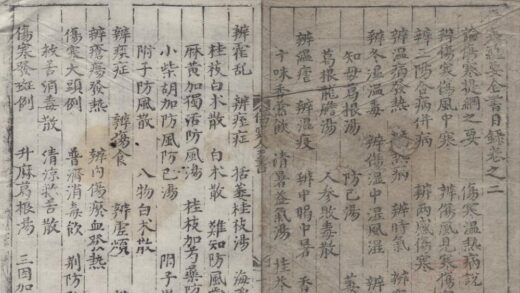 寒蘊要全書目錄卷之二
論傷寒提綱之要 傷寒温熱病說
辨傷寒傷風中寒 辨傷風見寒傷
辨三陽合病併病 辨兩感傷寒
辨温病發熱 辨熱病 辨時氣
辨冬温温毒 辨傷濕中濕風濕
知母葛根湯 防已湯
葛根龍膽湯 人参敗毒散
辨温瘧 辨温疫 辨中暍中暑
十味香薷飲 清暑益氣湯 桂苓
辨霍乱 辨痓症 括蔞桂枝湯 海
桂枝白朮散 白朮散 防風
麻黄加獨活防風湯 桂枝加芍藥防
小柴胡加防風防已湯
附子防風散 八物白朮散 附子
辨痰症 辨傷食 辨虛煩
辨瘡瘍發熱 辨内傷瘀血發熱
傷寒大頭例 普濟消毒飲 荆防
消毒散 清凉救苦散
傷寒發斑例 升麻葛根湯 三因加